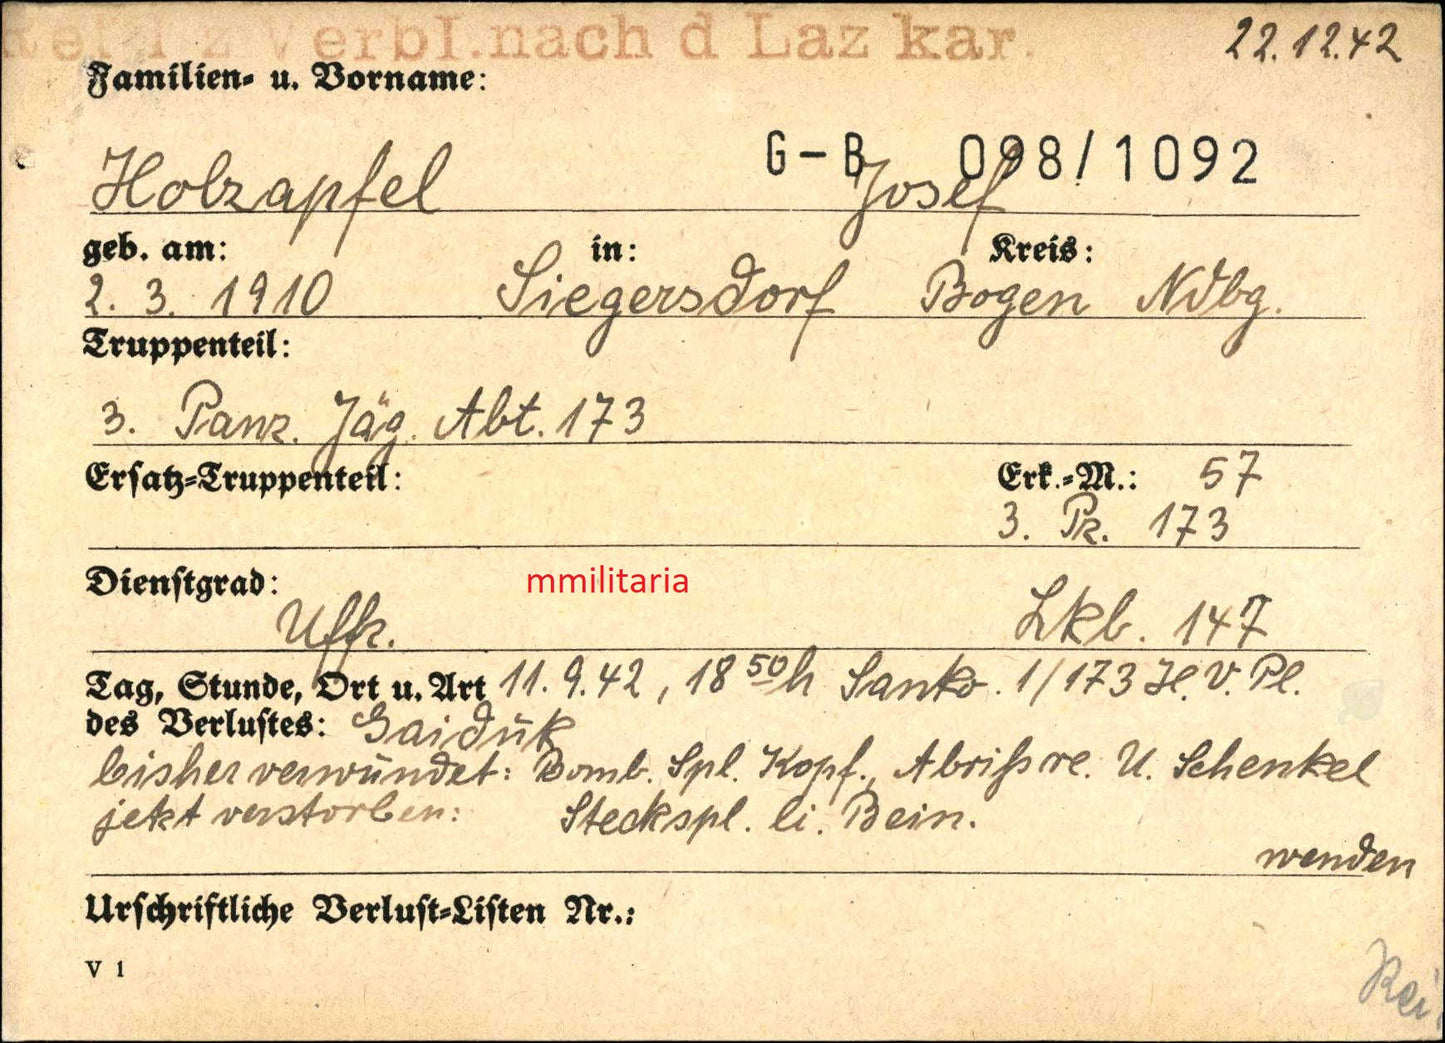 Verbl.nach d Laz kar.
22.12.42
Familien- u. Vorname:
G-B 098/1092
Holzapfel Josef
geb. am: in: Kreis:
2. 3. 1910 Siegersdorf Bogen Ndbg.
Truppenteil:
3. Panz. Jäg. Abt. 173
Ersatz-Truppenteil: Erk.-M.: 57
3. Pz. 173
Dienstgrad:
mmilitaria
Uffz. Lkb. 147
Tag, Stunde, Ort u. Art 11.9.42, 18 50 h Sanko. 1/173 H.V.Pl.
des Verlustes: Gaiduk
bisher verwundet: Bomb. Spl. Kopf., Abriß re. U. Schenkel
jetzt verstorben: Steckspl. li. Bein.
wenden
Urschriftliche Verlust-Listen Nr.:
V 1
Rei.